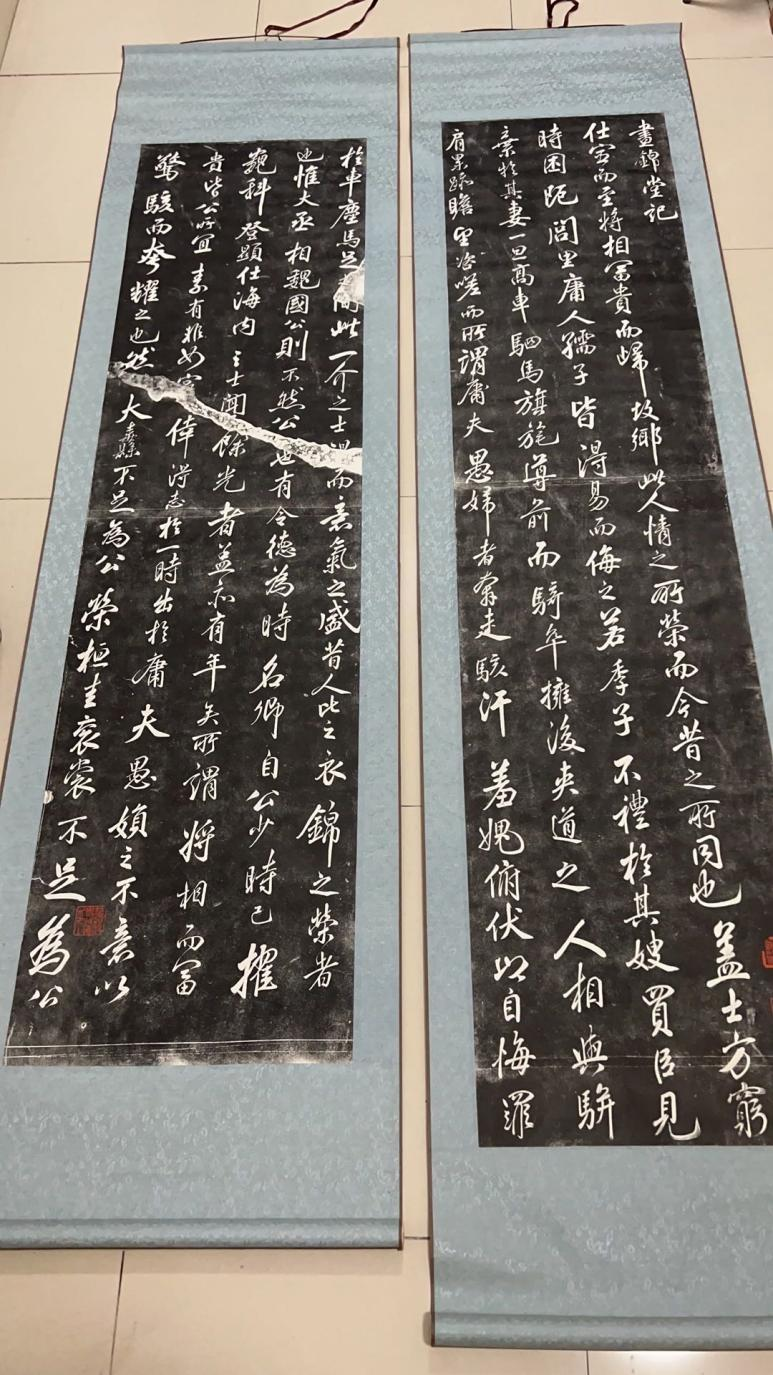 晝錦堂記
仕宦而至將相富貴而歸故鄉此人情之所榮而今昔之所同也蓋士方窮
時困阨閭里庸人孺子皆得易而侮之若季子不禮於其嫂買臣見
棄於其妻一旦高車駟馬旗旄導前而騎卒擁後夾道之人相與駢
肩累跡瞻望咨嗟而所謂庸夫愚婦者奔走駭汗羞愧俯伏以自悔罪
於車塵馬足之間此一介之士得而意氣之盛昔人比之衣錦之榮者
也惟大丞相魏國公則不然公也有令德為時名卿自公少時已擢
巍科登顯仕海內之士聞餘光者蓋亦有年矣所謂將相而富
貴皆公所宜素有非如窮倖得志於一時出於庸夫愚婦之不意以
驚駭而夸耀之也然大纛不足為公榮桓圭袞裳不足為公